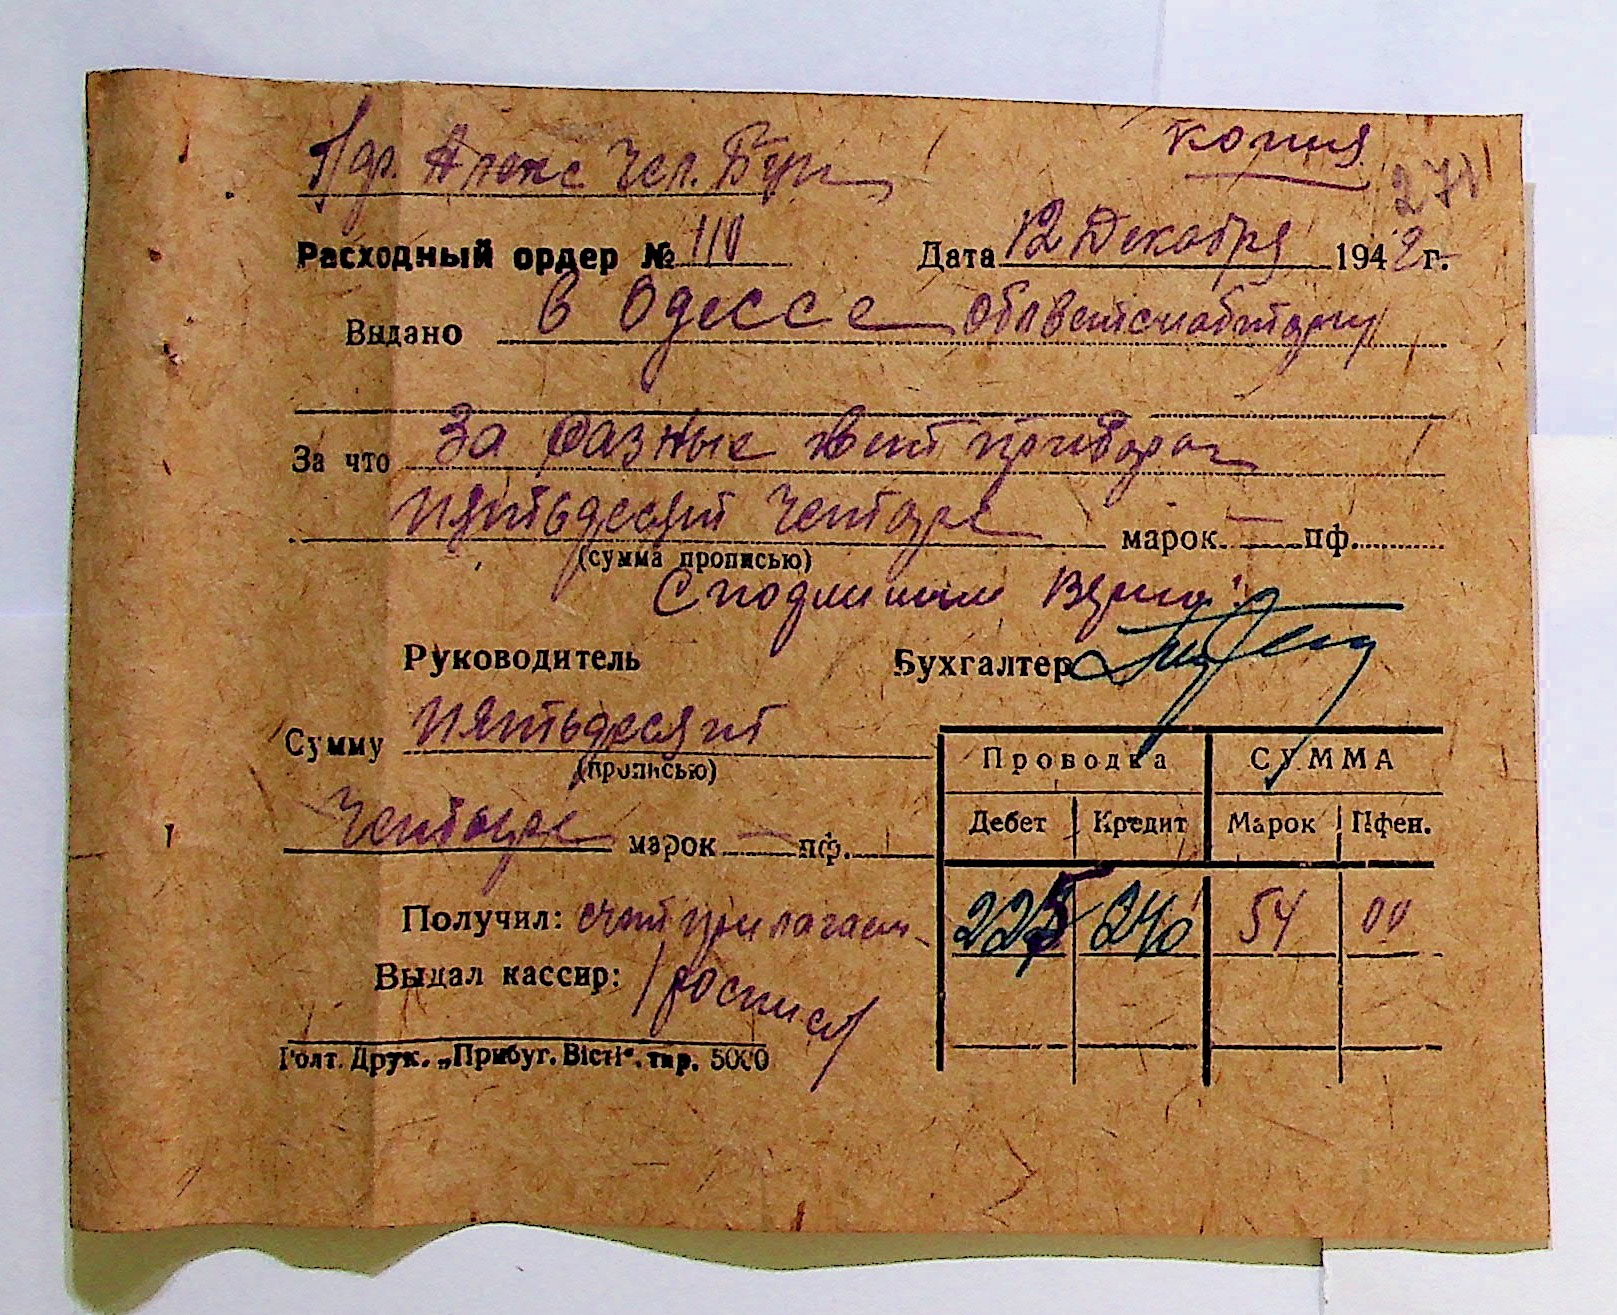 копия
271
Расходный ордер № 110 Дата 12 Декабря 1942г.
Выдано в Одессе Облветснабторгу
За что За разные вет приборы
пятьдесят четыре марок — пф.
(сумма прописью)
С подлинным верно:
Руководитель Бухгалтер
Сумму пятьдесят
(прописью)
четыре марок — пф.
Проводка СУММА
Дебет Кредит Марок Пфен.
225 240 54 00
Получил: счет прилагаем
Выдал кассир: роспись
Голт. Друк. „Прибуг. Вісті“. тир. 5000